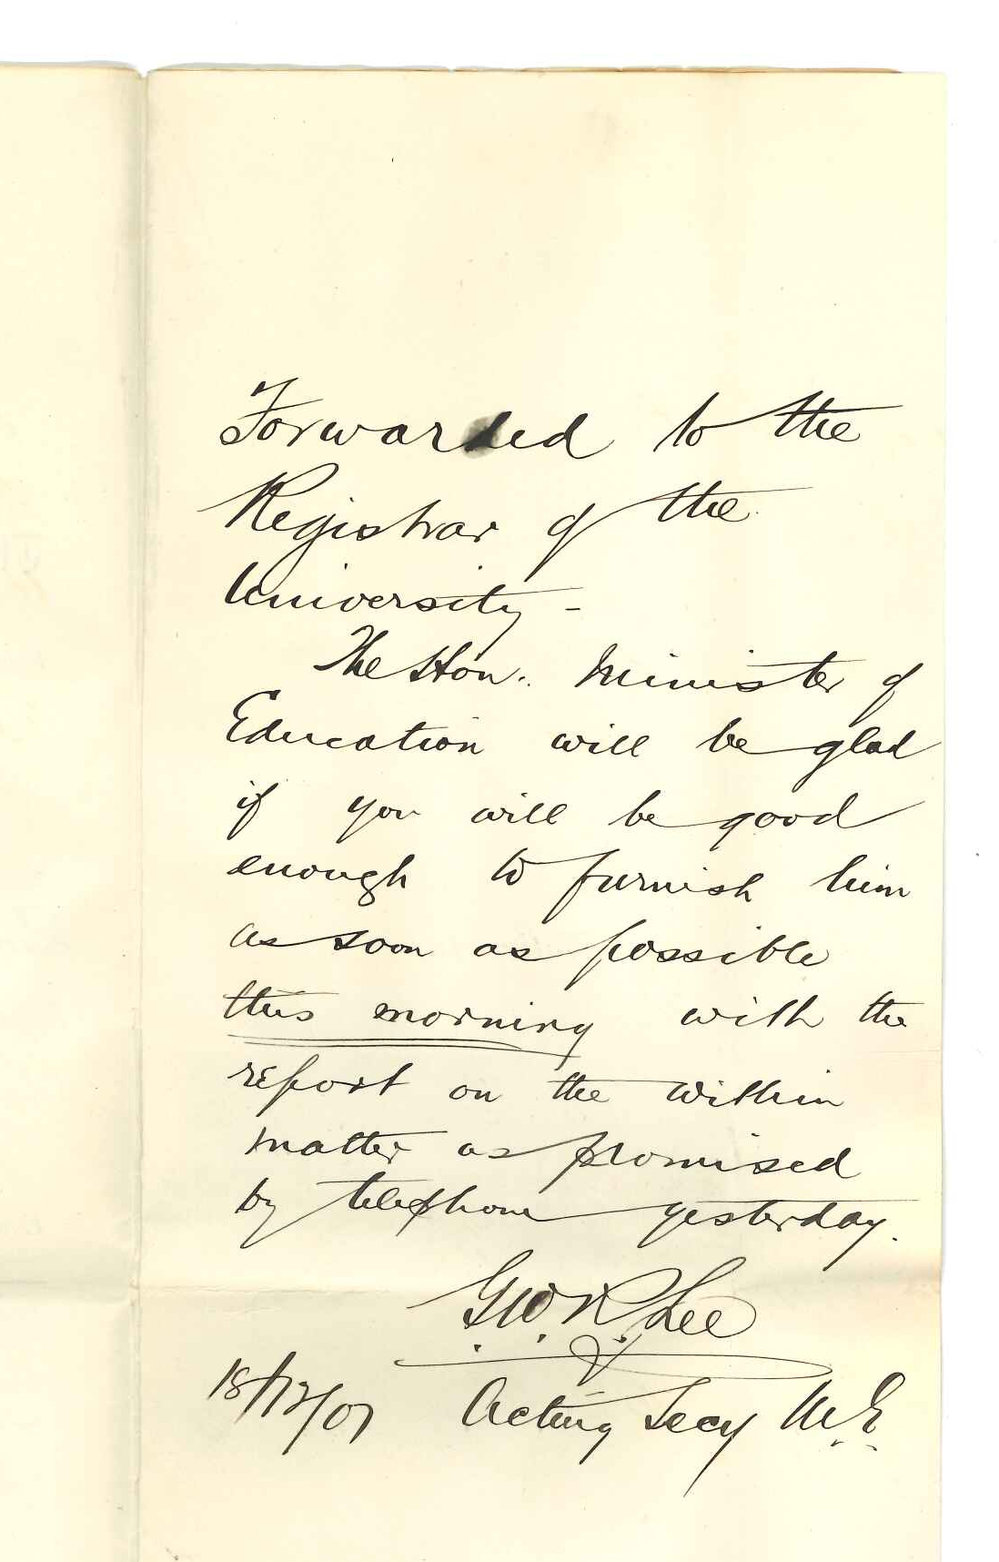 Forwarded to the
Registrar of the
University -
The Hon. Minister of
Education will be glad
if you will be good
enough to furnish him
as soon as possible
this morning with the
report on the within
matter as promised
by telephone yesterday.
Geo R Lee
18/12/07 Acting Secy M.E.